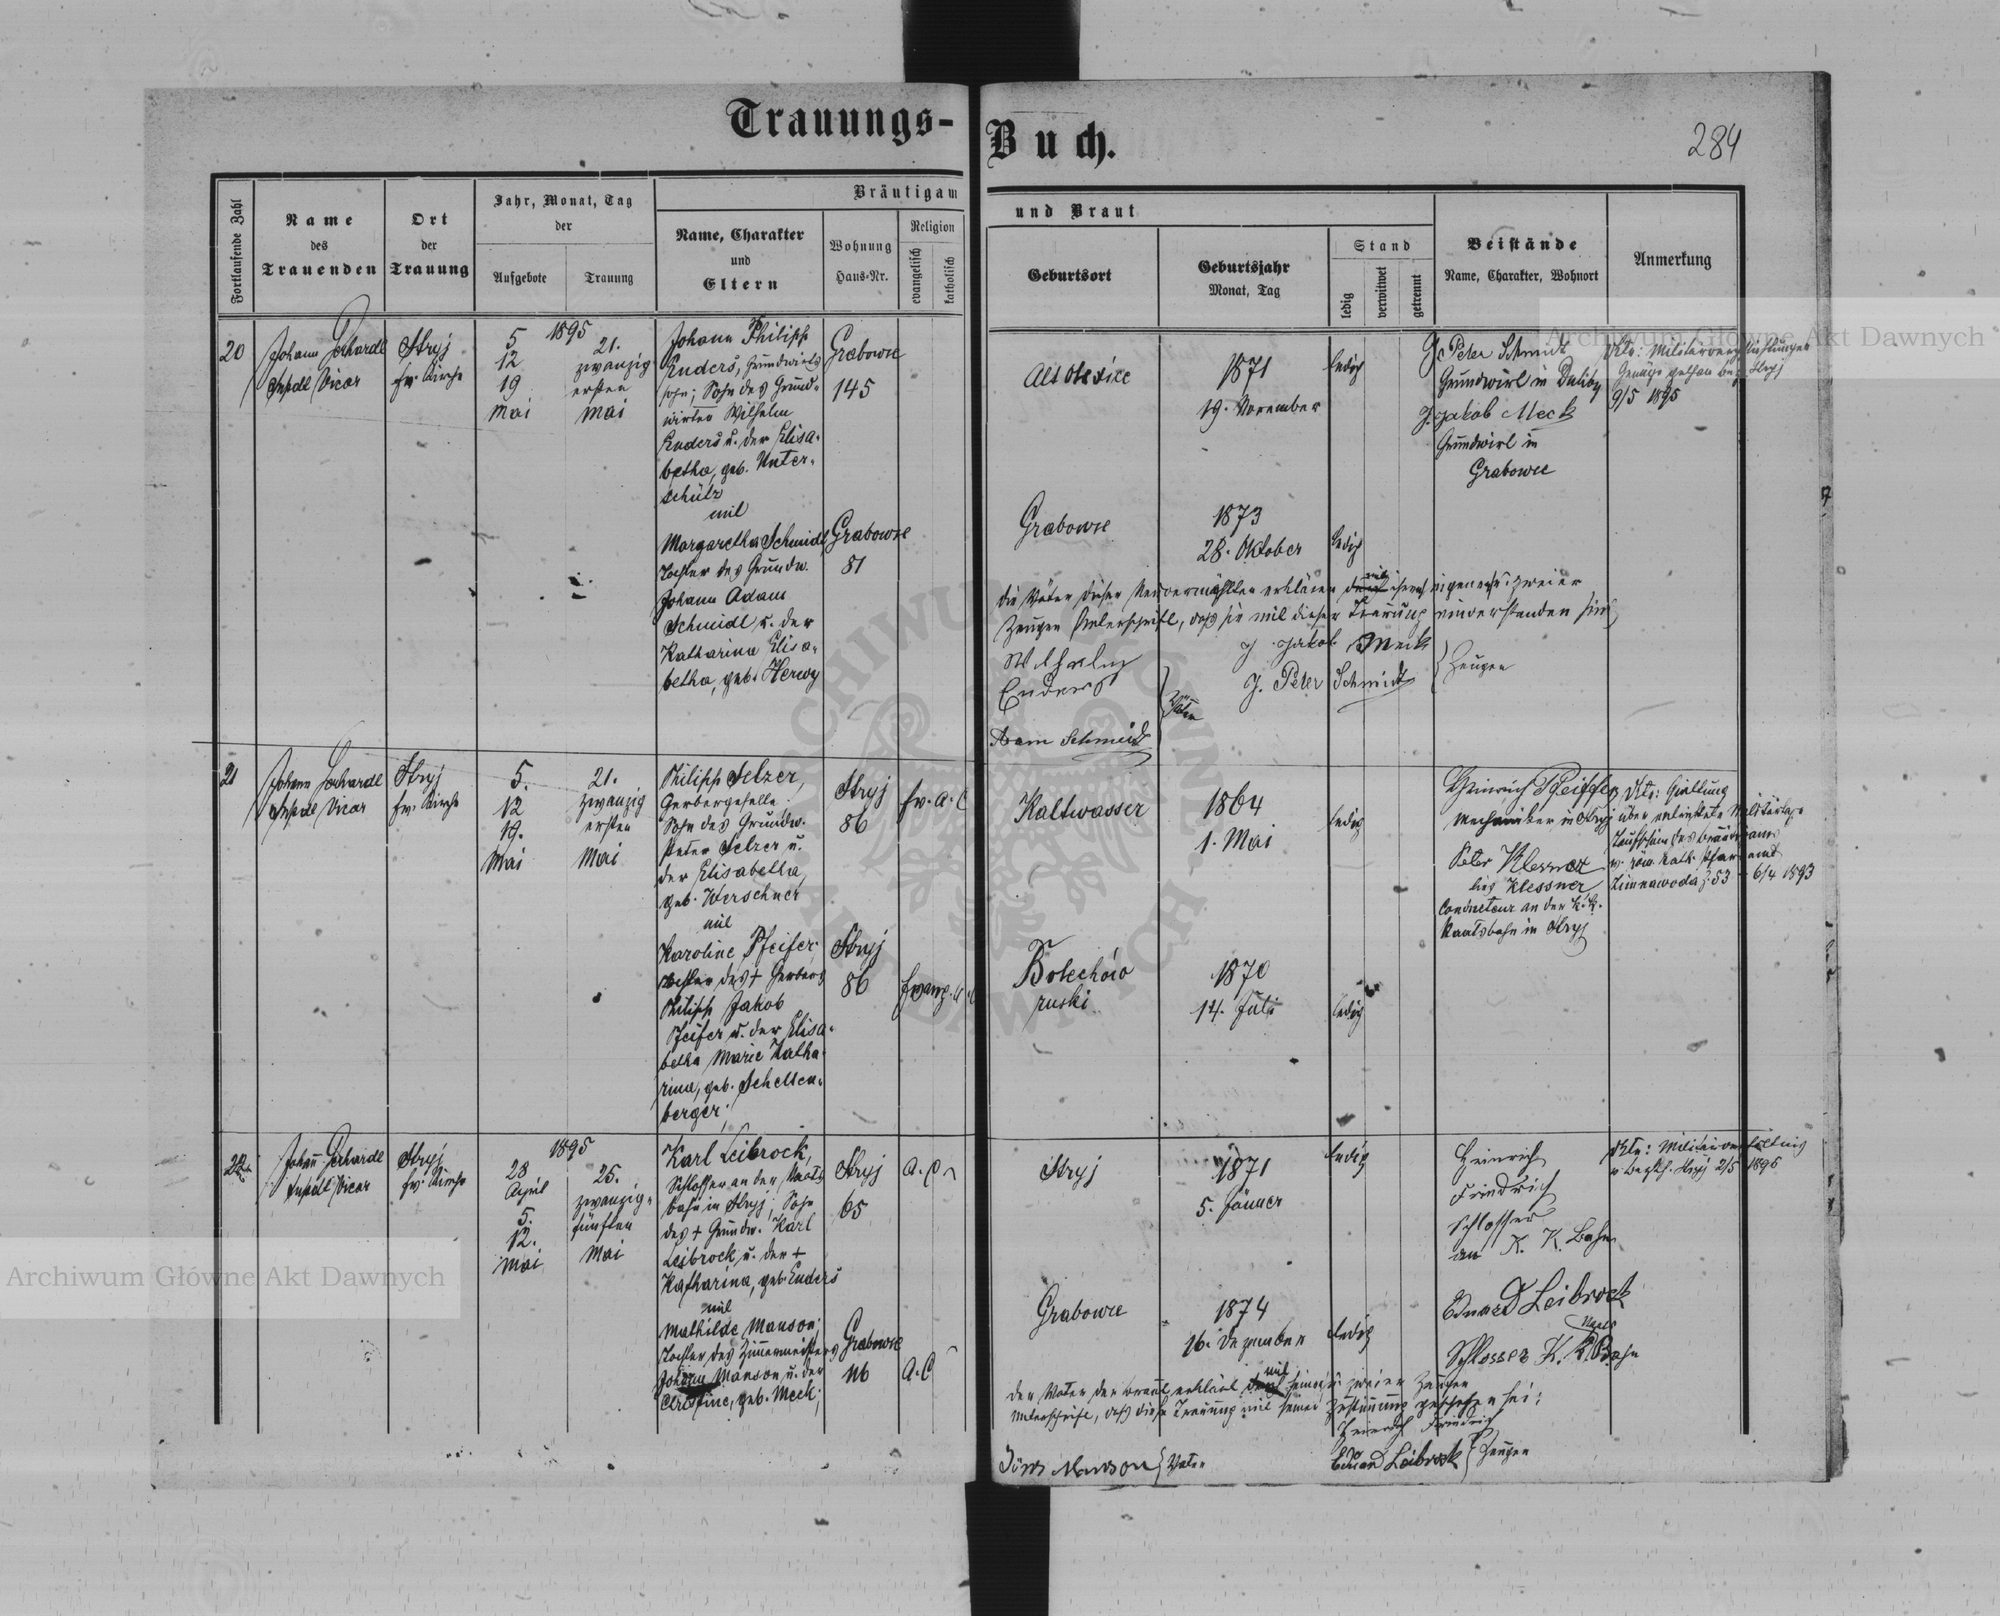 Trauungs-Buch.
284
Fortlaufende Zahl
Name
des
Trauenden
Ort
der
Trauung
Jahr, Monat, Tag
der
Aufgebote
Trauung
Bräutigam
und Braut
Name, Charakter
und
Eltern
Wohnung
Haus-Nr.
Religion
evangelisch
katholisch
Geburtsort
Geburtsjahr
Monat, Tag
Stand
ledig
verwitwet
getrennt
Beistände
Name, Charakter, Wohnort
Anmerkung
20
Johann
Vicar
Stryj
ev. Kirche
1895
5
12
19
Mai
21.
zwanzig
ersten
Mai
Johann Philipp
Enders, Grundwirts
sohn; Sohn des Grund-
wirten Wilhelm
Enders u. der Elisa-
betha, geb. Unter-
schütz
mit
Margaretha Schmidt
Tochter des Grundw.
Johann Adam
Schmidt u. der
Katharina Elisa-
betha, geb. Herwy
Grabowce
145
Grabowce
81
Alt Oleksice
1871
19. November
ledig
Grabowce
1873
28. Oktober
ledig
J. Peter Schmidt
Grundwirt in Duliby
J. Jakob Meck
Grundwirt in
Grabowce
9/5 1895
Die Väter dieser Neuvermählten erklären mit ihrer eigener u. zweier
Zeugen Unterschrift, daß sie mit dieser Trauung einverstanden sind
Wilhelm
Enders
Adam Schmidt
Väter
J. Jakob Meck
J. Peter Schmidt
Zeugen
21
Johann
Vicar
Stryj
ev. Kirche
5.
12
19.
Mai
21.
zwanzig
ersten
Mai
Philipp Selzer,
Gerbergeselle
Sohn des Grundw.
Peter Selzer u.
der Elisabetha,
geb. Werschner
mit
Karoline Pfeifer,
Tochter des + Gerbers
Philipp Jakob
Pfeifer u. der Elisa-
betha Marie Katha-
rina, geb. Schellen-
berger;
Stryj
86
ev. A. C
Stryj
86
evang. A. C
Kaltwasser
1864
1. Mai
ledig
Bolechów
ruski
1870
14. Juli
ledig
Heinrich Pfeiffer
Mechaniker in Stryj
Peter Klesner
lies Klessner
Conducteur an der k. k.
Staatsbahn in Stryj
Taufschein des Bräutigams
v. röm. kath. Pfarramt
Zimnawoda z. 53 - 6/4 1893
22
Johann
Vicar
Stryj
ev. Kirche
1895
28
April
5.
12.
Mai
25.
zwanzig-
fünften
Mai
Karl Leibrock,
Schlosser an der Staats
bahn in Stryj, Sohn
des + Grundw. Karl
Leibrock u. der +
Katharina, geb. Enders
mit
Mathilde Manson,
Tochter des Zimmermeisters
Johann Manson u. der
Christine, geb. Meck;
Stryj
65
A. C
Grabowce
116
A. C
Stryj
1871
5. Jänner
ledig
Grabowce
1874
16. Dezember
ledig
Heinrich
Friedrich
Schlosser
an K. K. Bahn
Eduard Leibrock
Schlosser K. K. Bahn
Der Vater der Braut erklärt mit seiner u. zweier Zeugen
Unterschrift, daß diese Trauung mit seiner Zustimmung geschehen sei:
Heinrich Friedrich
Eduard Leibrock
Zeugen
Manson
Vater
Archiwum Główne Akt Dawnych
Archiwum Główne Akt Dawnych